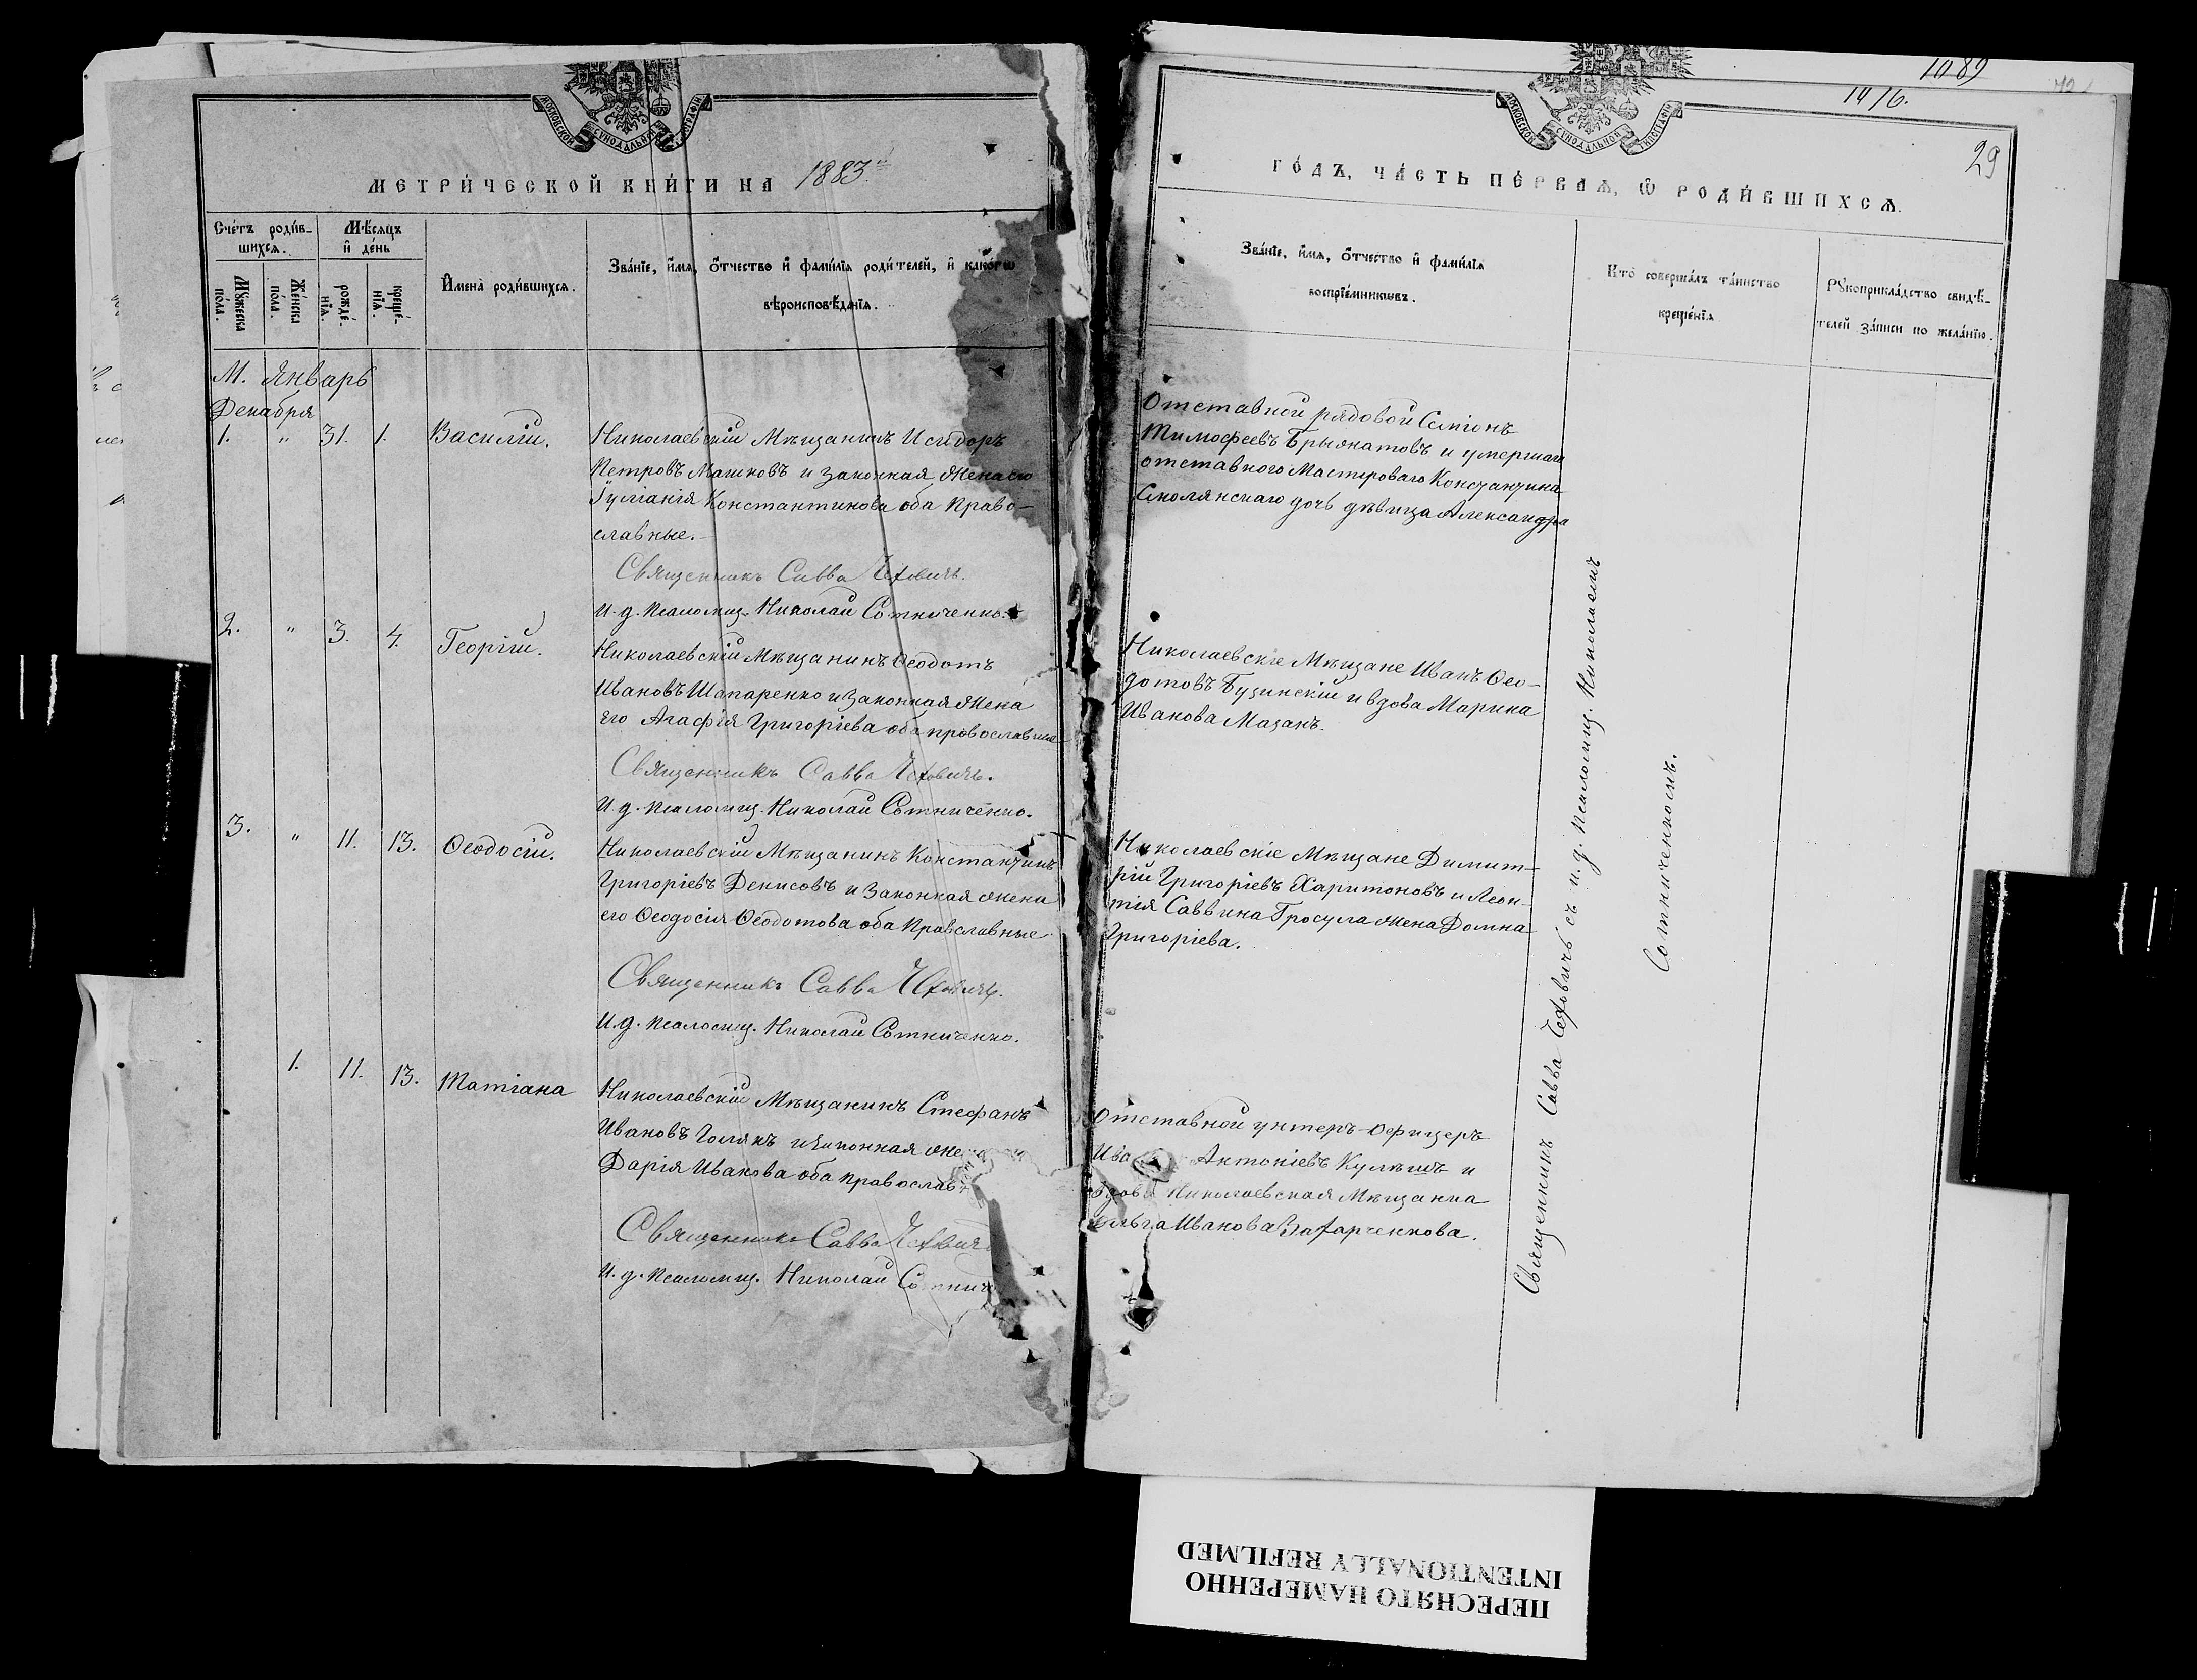 МОСКОВСКОЙ СѴНОДАЛЬНОЙ
МЕТРИ́ЧЕСКОЙ КНИ́ГИ НА 1883й
Сче́тъ роди́в-
шихсѧ.
Мѣ́сяцъ
и҆ де́нь
Мꙋ́жеска
по́ла.
Же́нска
по́ла.
рожде́-
нїѧ.
креще́-
нїѧ.
И҆мена̀ роди́вшихсѧ.
Зва́нїе, и҆́мѧ, ѻ҆́тчество и҆ фами́лїѧ роди́телей, и҆ како́гѡ
вѣроисповѣ́данїѧ.
М. Январь
Декабря
1. " 31. 1. Василій.
Николаевскій Мѣщанинъ Исидоръ
Петровъ Машковъ и законная жена его
Іуліанія Константинова оба Право-
славные.
Священникъ Савва Чехович.
И. д. Псаломщ. Николай Сотниченко.
2. " 3. 4. Георгій.
Николаевскій Мѣщанинъ Ѳеодотъ
Ивановъ Шапаренко и законная жена
его Агафія Григоріева оба православные
Священникъ Савва Чеховичъ.
И. д. Псаломщ. Николай Сотниченко.
3. " 11. 13. Ѳеодосій.
Николаевскій Мѣщанинъ Константинъ
Григоріевъ Денисовъ и законная жена
его Ѳеодосія Ѳеодотова оба Православные
Священникъ Савва Чеховичъ.
И. д. Псаломщ. Николай Сотниченко.
1. 11. 13. Татіана
Николаевскій Мѣщанинъ Стефанъ
Ивановъ Голякъ и законная жена
Дарія Иванова оба православ
Священникъ Савва Чехович
И. д. Псаломщ. Николай Сотнич
1089
1416.
29
МОСКОВСКОЙ СѴНОДАЛЬНОЙ ТѴПОГРАФІИ
ГО́ДЪ, ЧА́СТЬ ПЕ́РВАѦ, Ѡ҆ РОДИ́ВШИХСѦ.
Зва́нїе, и҆́мѧ, ѻ҆́тчество и҆ фами́лїѧ
воспрїе́мникѡвъ.
Кто̀ соверша́лъ та́инство
креще́нїѧ
Рꙋкоприкла́дство свидѣ́-
телей за́писи по жела́нїю.
Отставной рядовой Семіонъ
Тимофеевъ Брыкатовъ и умершаго
отставного Мастероваго Константина
Смолянскаго дочь дѣвица Александра
Николаевскіе Мѣщане Иванъ Ѳео-
дотовъ Бузинскій и вдова Марина
Иванова Мазанъ.
Николаевскіе Мѣщане Димит-
рій Григоріевъ Харитоновъ и Леон-
тія Саввина Гросула жена Домна
Григоріева.
Отставной унтеръ-офицеръ
Антоніевъ Кулишъ и
Николаевская Мѣщанка
Иванова Захарченкова.
Священникъ Савва Чеховичъ съ и. д. Псаломщ. Николаемъ
Сотниченкомъ.
ПЕРЕСНЯТО НАМЕРЕННО
INTENTIONALLY REFILMED